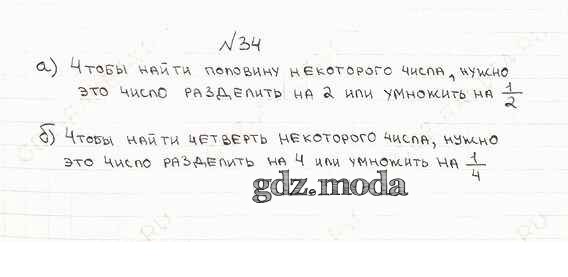 №34
а) Чтобы найти половину некоторого числа, нужно
это число разделить на 2 или умножить на 1/2
б) Чтобы найти четверть некоторого числа, нужно
это число разделить на 4 или умножить на 1/4
gdz.moda